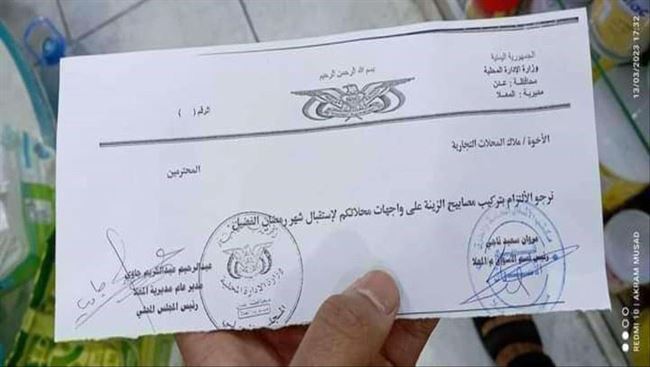 بسم الله الرحمن الرحيم
الجمهورية اليمنية
وزارة الإدارة المحلية
محافظة : عدن
مديرية : المعلا
الرقم ( )
الأخوة / ملاك المحلات التجارية
المحترمين
نرجو الألتزام بتركيب مصابيح الزينة على واجهات محلاتكم لإستقبال شهر رمضان الفضيل
مروان سعيد ناجي
رئيس قسم الأسواق م المعلا
عبدالرحيم عبدالكريم جاوي
مدير عام مديرية المعلا
رئيس المجلس المحلي
وزارة الإدارة المحلية
13/03/2023 17:32
REDMI 10 | AKRAM MUSAD